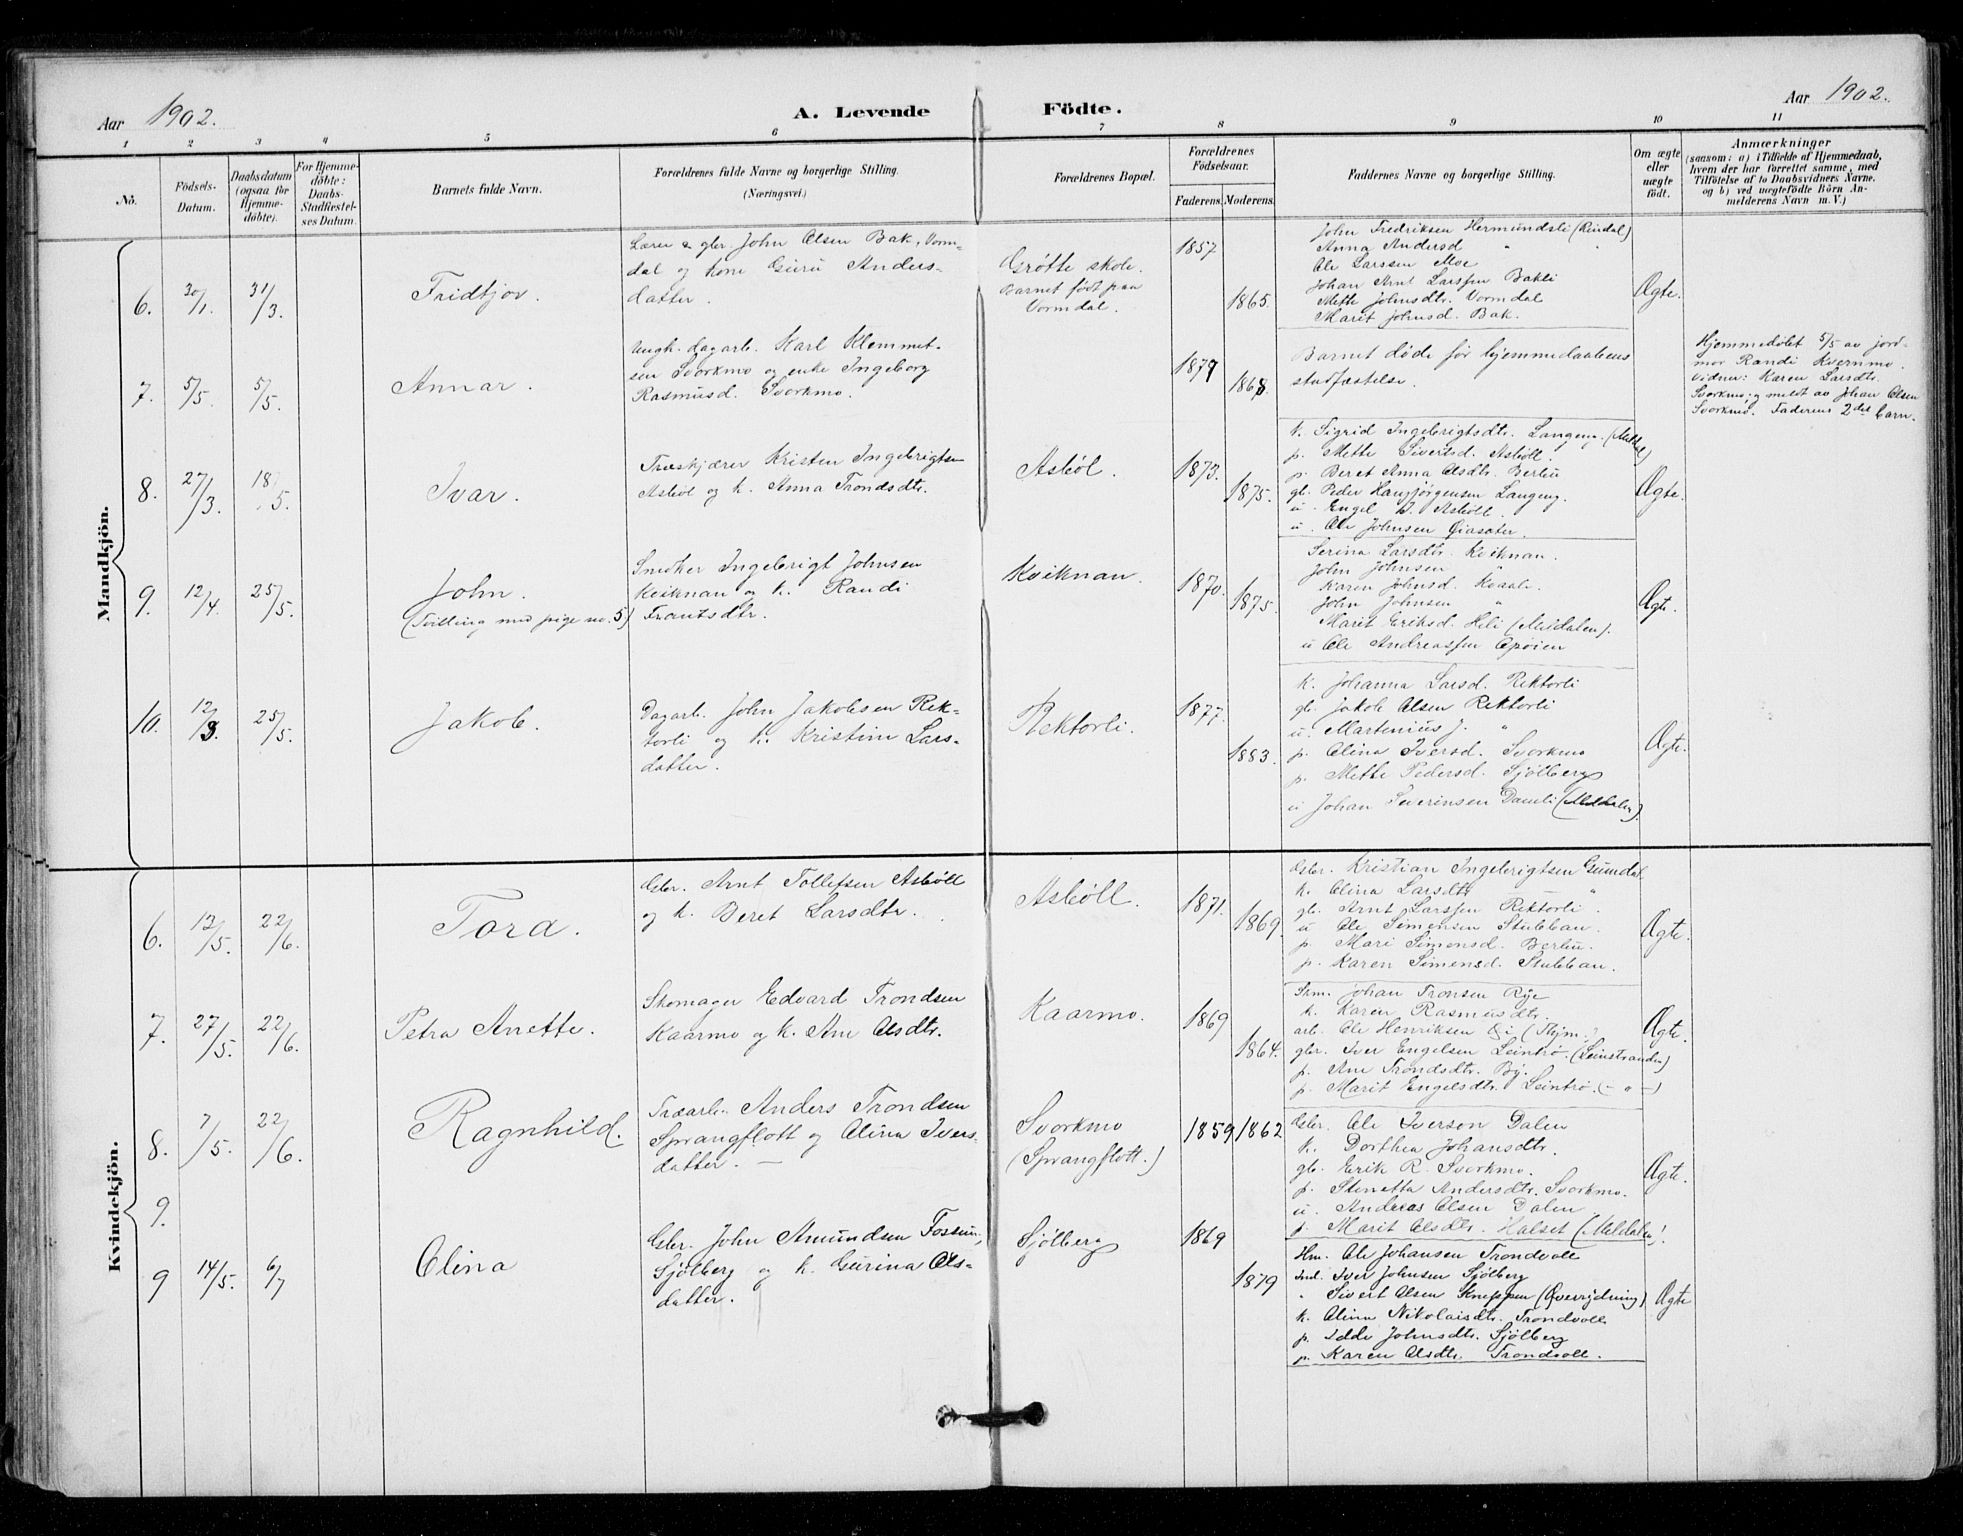 Aar 1902.
A. Levende Födte.
Aar 1902.
1 2 3 4 5 6 7 8 9 10 11
No.
Födsels-Datum.
Daabsdatum (ogsaa for Hjemme-döbte).
For Hjemme-döbte: Daabs Stadfæstel-ses Datum.
Barnets fulde Navn.
Forældrenes fulde Navne og borgerlige Stilling. (Næringsvei.)
Forældrenes Bopæl.
Forældrenes Födselsaar.
Faderens. Moderens.
Faddernes Navne og borgerlige Stilling.
Om ægte eller uægte födt.
Anmærkninger
(saasom: a) i Tilfælde af Hjemmedaab,
hvem der har forrettet samme, med
Tilföielse af to Daabsvidners Navne.
og b) ved uægtefödte Börn An-
melderens Navn m. V.)
Mandkjön.
6. 30/1. 31/3.
Fridtjov.
Lærer & gbr. John Olsen Bak, Vorm-
dal og kone Guru Anders-
datter.
Grøtte skole.
Barnet født paa
Vormdal.
1857
1865.
John Fredriksen Hermundsli (Rindal)
Anna Andersd " "
Ole Larssen Moe
Johan Arnt Larssen Bakli
Mette Johnsdtr. Vormdal
Marit Johnsd. Bak.
Ægte.
7. 5/5. 5/5.
Annar.
Ungk. dagarb. Karl Klemmet-
sen Svorkmo og enke Ingeborg
Rasmusd. Svorkmo.
1877
1868.
Barnet døde før hjemmedaabens
stadfæstelse.
Hjemmedøbt 5/5 av jord-
mor Randi Kvernmo.
Vidner: Karen Larsdtr.
Svorkmo og meldt av Johan Olsen
Svorkmo. Faderens 2det barn.
8. 27/3. 18/5.
Ivar.
Træskjærer Kristen Ingebrigtsen
Asbøl og k. Anna Trondsdtr.
Asbøl.
1873.
1875.
k. Sigrid Ingebrigtsdtr. Langeng. (Meldal)
p. Mette Sivertsd. Asbøll.
p. Beret Anna Olsdtr. Berbu
gb. Peder Hansjørgensen Langeng.
u. Engel K. Asbøll.
u. Ole Johnsen Øiasæter.
Ægte.
9. 12/4. 25/5.
John.
(Tvilling med pige no. 5)
Smeder Ingebrigt Johnsen
Kviknan og k. Randi
Frantsdtr.
Kviknan.
1870.
1875.
Serina Larsdtr. Kviknan.
John Johnsen "
Karen Johnsd. Kvaale.
John Johnsen "
Marit Eriksd. Heli (Meldalen).
u Ole Andreassen Opøien
Ægte.
10. 12/3. 25/5.
Jakob.
Dagarb. John Jakobsen Rek-
torli og k. Kristine Lars-
datter.
Rektorli.
1877.
1883.
k. Johanna Larsd. Rektorli
gb. Jakob Olsen Rektorli
u. Martenius J. "
p. Olina Iversd. Svorkmo
p. Mette Pedersd. Sjølberg
u Johan Severinsen Damli (Meldalen).
Ægte.
Kvindekjön.
6. 12/5. 22/6.
Tora.
Gbr. Arnt Tollefsen Asbøll
og k. Beret Larsdtr.
Asbøll.
1871.
1869.
Gbr. Kristian Ingebrigtsen Gumdal
k. Olina Larsdtr — "
gb. Arnt Larssen Rektorli.
u Ole Simensen Stubban.
p. Mari Simensd. Berbu.
p. Karen Simensd. Stubban.
Ægte.
7. 27/5. 22/6.
Petra Anette.
Skomager Edvard Trondsen
Kaarmo og k. Ane Olsdtr.
Kaarmo.
1869
1864.
Skm. Johan Tronsen Rye
k. Karen Rasmusdtr.
arb. Ole Henriksen
gbr. Iver Engelsen Leintrø. (Leinstranden)
p. Ane Trondsdtr. By.
p. Marit Engelsdtr. Leintrø. (– " –)
Ægte.
8. 7/5. 22/6.
Ragnhild.
Træarb. Anders Trondsen
Sprangflott og Olina Ivers-
datter. —
Svorkmo
(Sprangflott.)
1859
1862
Gbr. Ole Iverson Dalen
k. Dorthea Johansdtr.
gb. Erik R. Svorkmo.
p. Stenetta Andersdtr. Svorkmo.
u. Andreas Olsen Dalen
p. Marit Olsdtr. Halset (Meldalen)
Ægte.
9.
9 14/5. 6/7
Olina
Gbr. John Amundsen Fossum,
Sjølberg og k. Gurina Ols-
datter.
Sjølberg
1869
1879
Hm. Ole Johansen Trondvoll
Ind. Iver Johnsen Sjølberg
" Sivert Olsen Kneppen (Overvjdning)
k. Olina Nikolaisdtr. Trondvoll
p. Idde Johnsdtr. Sjølberg
p. Karen Olsdtr. Trondvoll.
Ægte